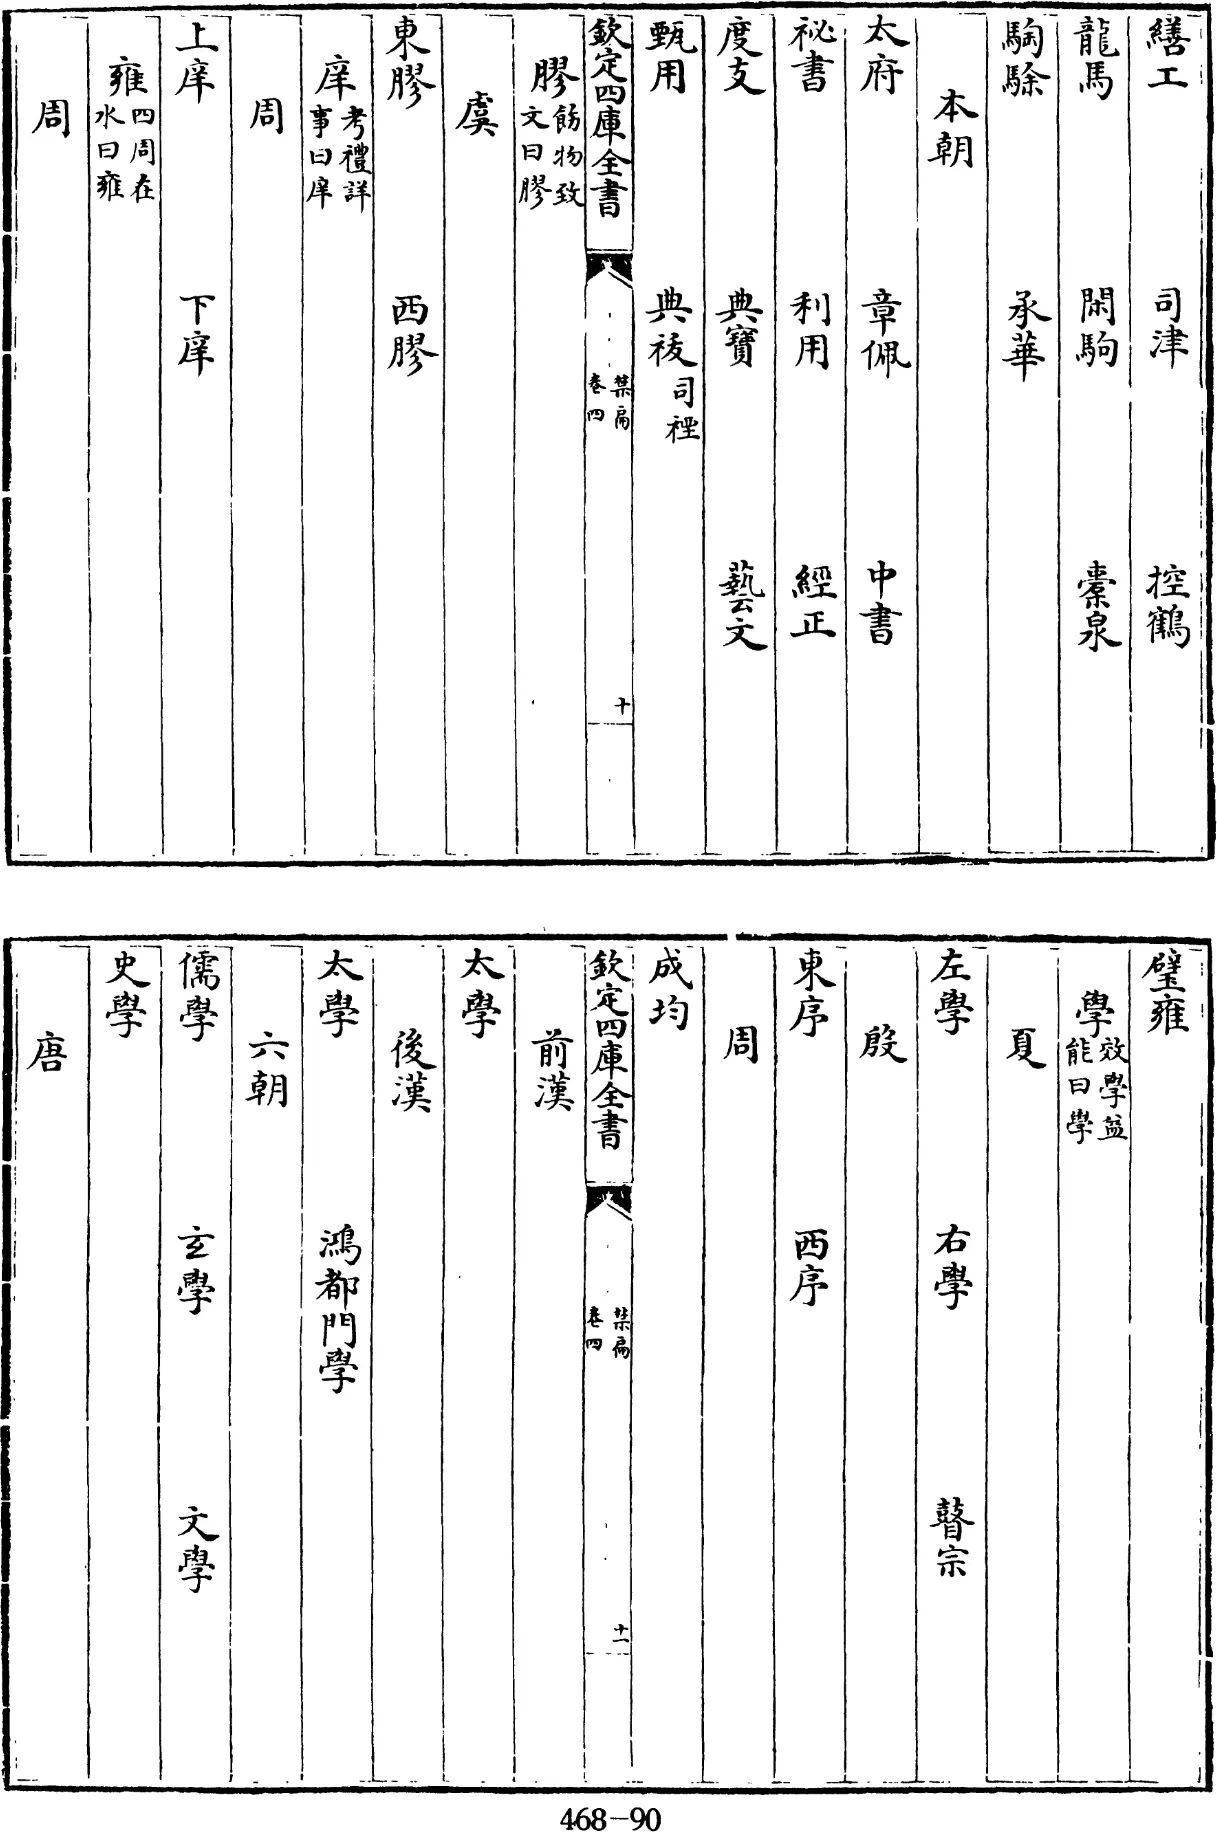 繕工 司津 控鶴
龍馬 閑駒 橐泉
騊駼 承華
本朝
太府 章佩 中書
祕書 利用 經正
度支 典寶 藝文
甄用 典祓 司禋
欽定四庫全書 禁扁 卷四 十
膠 飭物致文曰膠
虞
東膠 西膠
庠 考禮詳事曰庠
周
上庠 下庠
雍 四周在水曰雍
周
璧雍
學 效學益能曰學
夏
左學 右學 瞽宗
殷
東序 西序
周
成均
欽定四庫全書 禁扁 卷四 十一
前漢
太學
後漢
太學 鴻都門學
六朝
儒學 玄學 文學
史學
唐
468-90